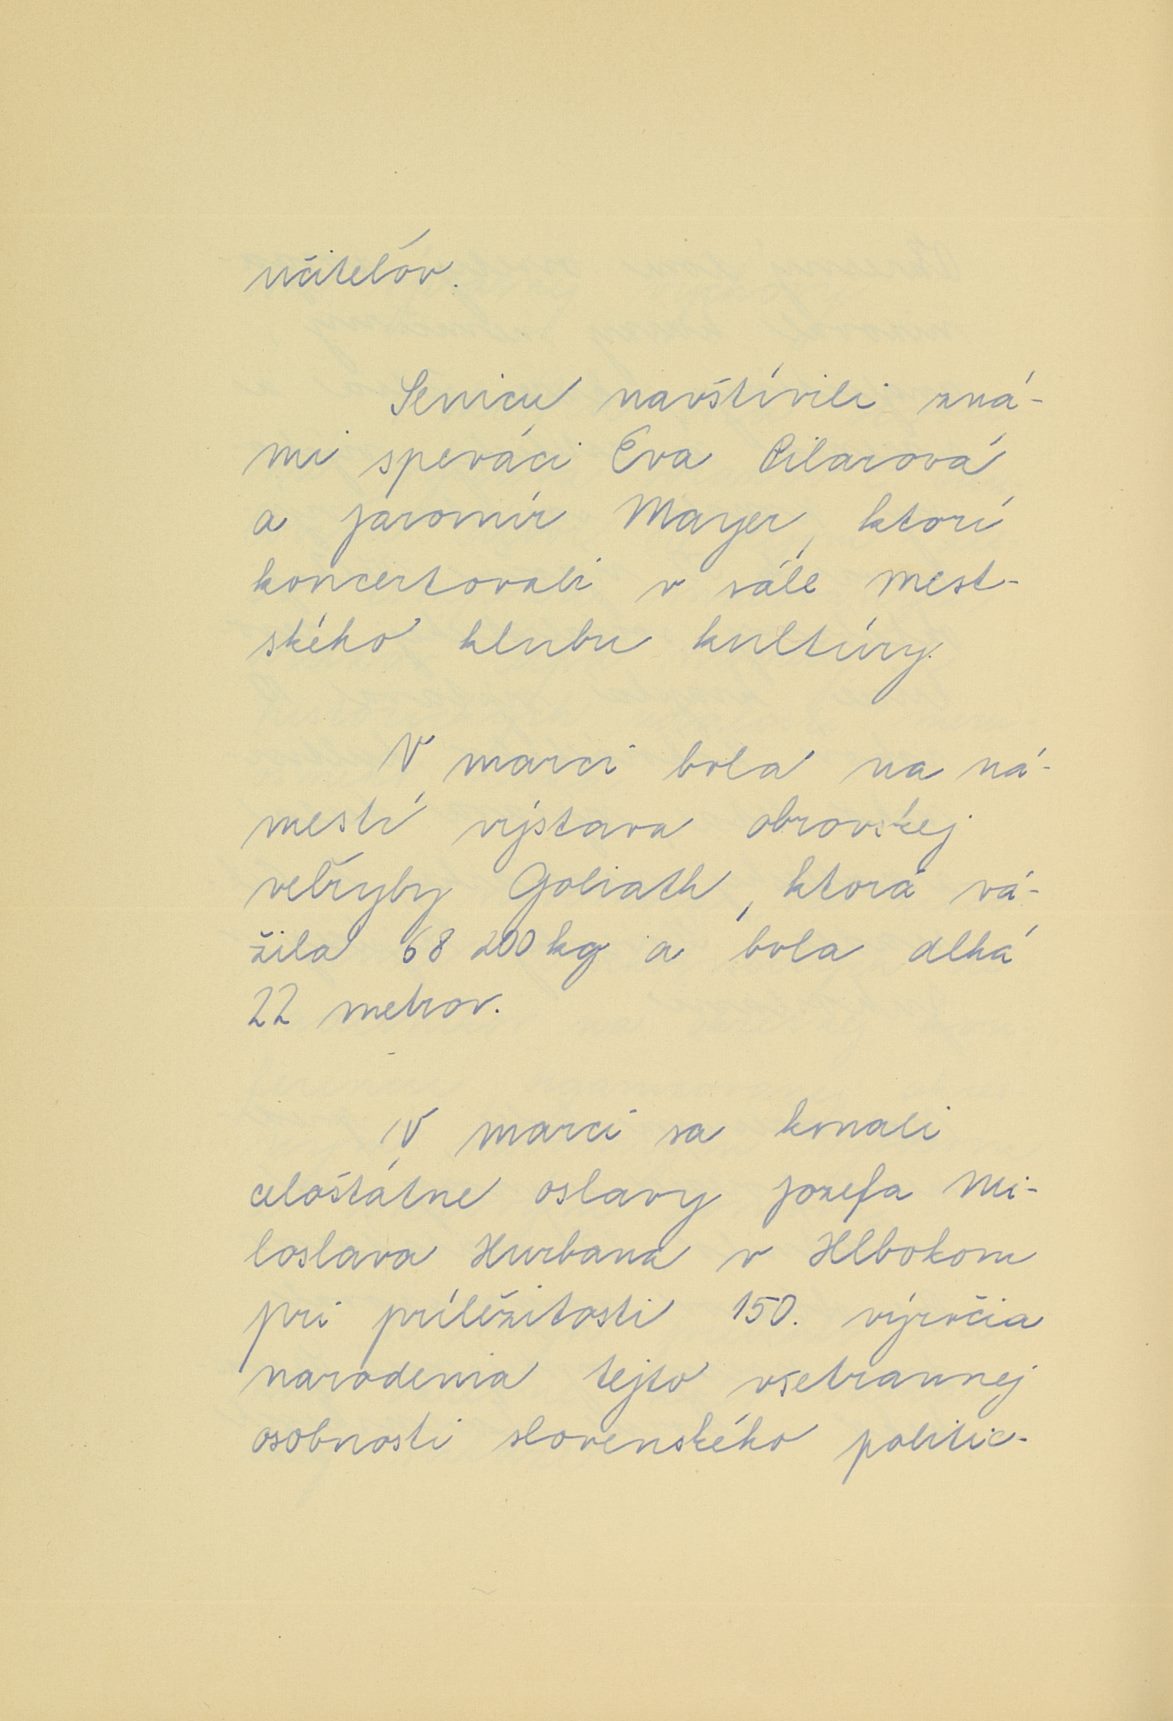 učiteľov.
Senicu navštívili zná-
mi speváci Eva Pilarová
a Jaromír Mayer, ktorí
koncertovali v sále Mest-
ského klubu kultúry.
V marci bola na ná-
mestí výstava obrovskej
veľryby Goliath, ktorá vá-
žila 68 200 kg a bola dlhá
22 metrov.
V marci sa konali
celoštátne oslavy Jozefa Mi-
loslava Hurbana v Hlbokom
pri príležitosti 150. výročia
narodenia tejto všetrannej
osobnosti slovenského politic-